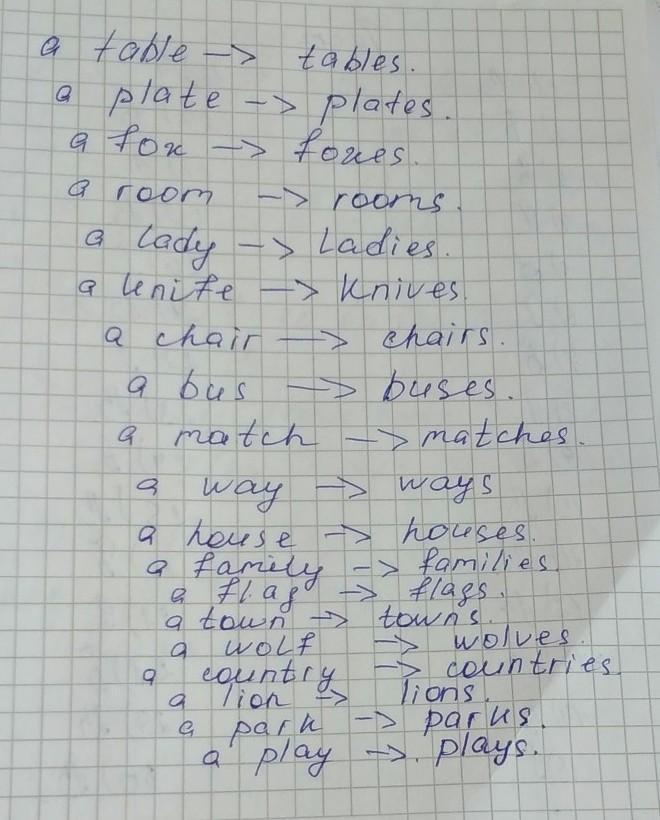 a table -> tables.
a plate -> plates.
a fox -> foxes.
a room -> rooms.
a lady -> Ladies.
a knife -> knives.
a chair -> chairs.
a bus -> buses.
a match -> matches.
a way -> ways
a house -> houses.
a family -> families.
a flag -> flags.
a town -> towns.
a wolf -> wolves.
a country -> countries.
a lion -> lions.
a park -> parks.
a play -> plays.